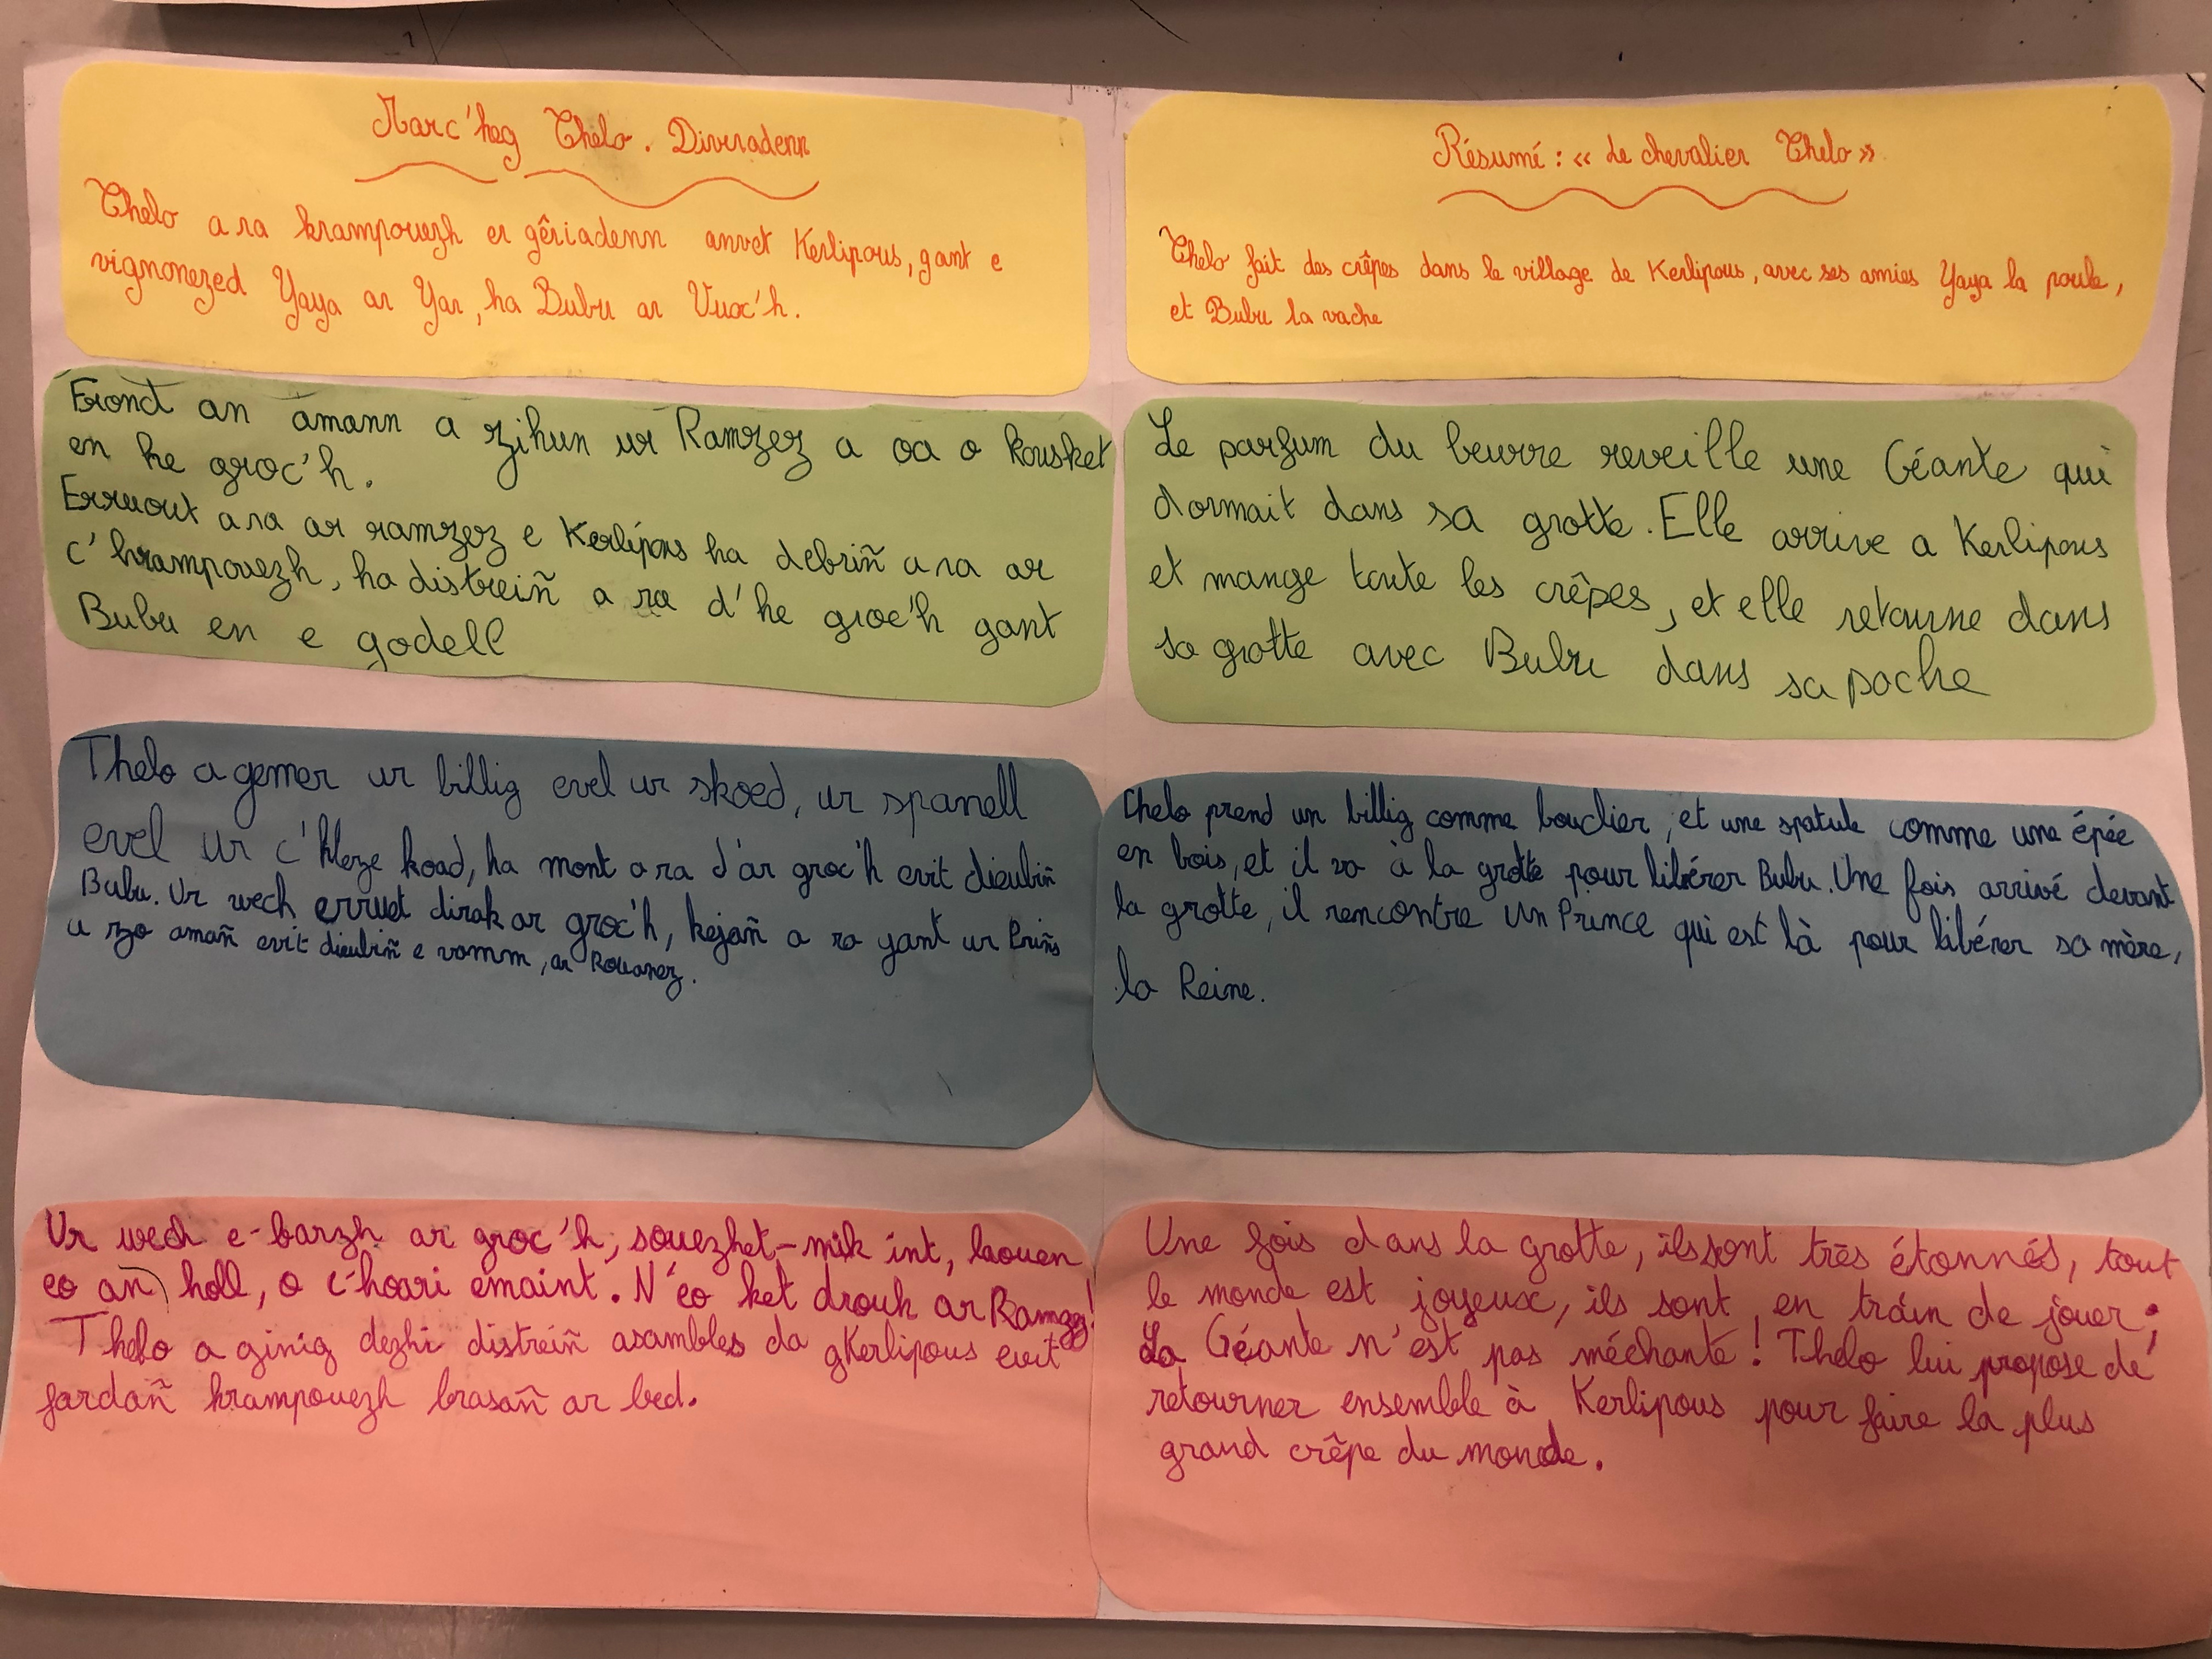 Marc'heg Thelo. Diverradenn
Thelo a ra krampouezh er gêriadenn anvet Kerlipous, gant e
vignonezed Yaya ar Yar, ha Bubu ar Vuoc'h.
Frond an amann a zihun ur Ramzez a oa o kousket
en he groc'h.
Erruout a ra ar ramzez e Kerlipous ha debriñ a ra ar
c'hrampouezh, ha distreiñ a ra d'he groc'h gant
Bubu en e godell
Thelo a gemer ur billig evel ur skoed, ur spanell
evel ur c'hleze koad, ha mont a ra d'ar groc'h evit dieubiñ
Bubu. Ur wech erruet dirak ar groc'h, kejañ a ra gant ur Priñs
u zo amañ evit dieubiñ e vamm, ar Rouanez.
Ur wech e-barzh ar groc'h, souezhet-mik int, laouen
eo an holl, o c'hoari emaint. N'eo ket drouk ar Ramzez!
Thelo a ginig dezhi distreiñ asambles da gKerlipous evit
fardañ krampouezh brasañ ar bed.
Résumé : « Le chevalier Thelo »
Thelo fait des crêpes dans le village de Kerlipous, avec ses amies Yaya la poule,
et Bubu la vache
Le parfum du beurre reveille une Géante qui
dormait dans sa grotte. Elle arrive a Kerlipous
et mange toute les crêpes, et elle retourne dans
sa grotte avec Bubu dans sa poche
Thelo prend un billig comme bouclier, et une spatule comme une épée
en bois, et il va à la grotte pour libérer Bubu. Une fois arrivé devant
la grotte, il rencontre un Prince qui est là pour libérer sa mère,
la Reine.
Une fois dans la grotte, ils sont très étonnés, tout
le monde est joyeux, ils sont en train de jouer ;
La Géante n'est pas méchante ! Thelo lui propose de
retourner ensemble à Kerlipous pour faire la plus
grand crêpe du monde.